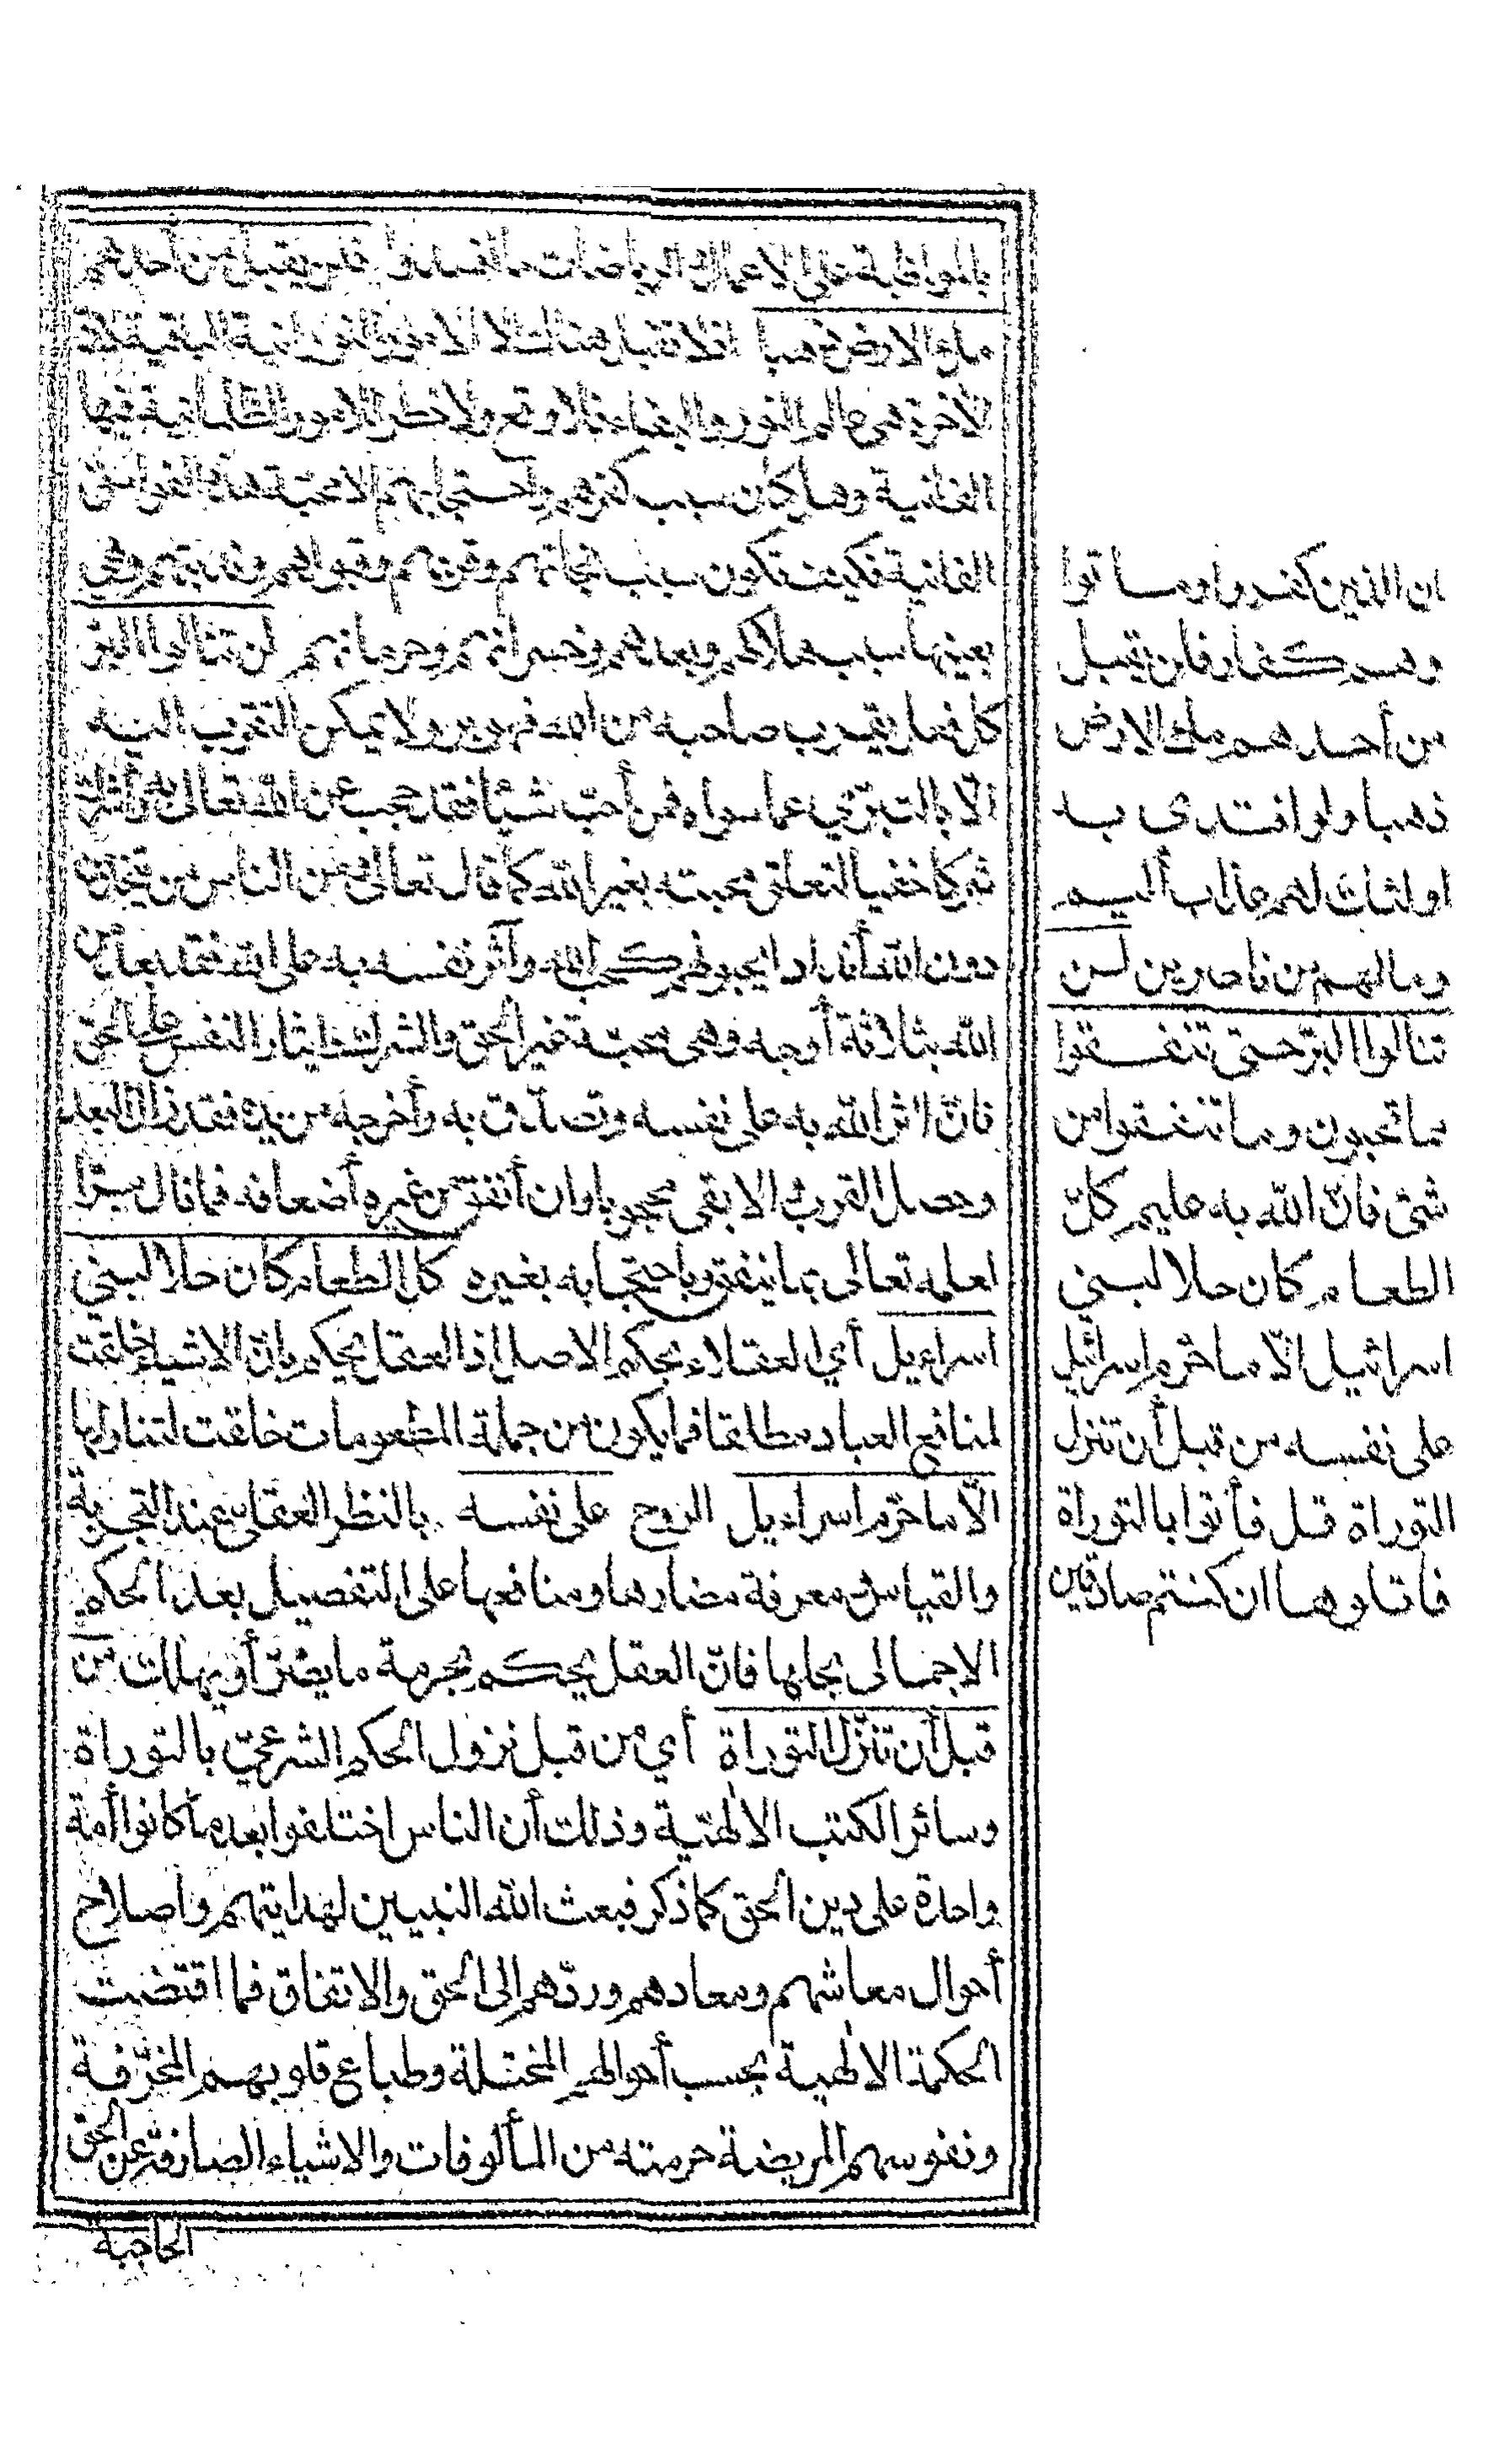 بالمواظبة على الاعمال والرياضات ما أفسدوا فلن يقبل من أحدهم
ملء الارض ذهبا اذ لا تقبل هناك الا الامور النورانية الباقية لان
الآخرة هى عالم النور والبقاء فلا وقع ولا خطر للامور الظلمانية فيها
الفانية وهل كان سبب كفرهم واحتجابهم الا محبة هذه الغواشى
الفانية فكيف تكون سبب نجاتهم وقربهم وقبولهم وهى
بعينها سبب هلاكهم وبعدهم وخسرانهم وحرمانهم لن تنالوا البرّ
كل فعل يقرب صاحبه من الله فهو بر ولا يمكن التقرب اليه
الّا بالتبرّي عما سواه فمن أحب شيئا فقد حجب عن الله تعالى به وأشرك
شركا خفيا لتعلق محبته بغير الله كما قال تعالى ومن الناس من يتخذ من
دون الله أندادا يحبونهم كحب الله وآثر نفسه به على الله فقد بعد من
الله بثلاثة أوجه وهى محبة غير الحق والشرك وايثار النفس على الحق
فان آثر الله به على نفسه وتصدّق به وأخرجه من يده فقد زال البعد
وحصل القرب والا بقى محجوبا وان أنفق من غيره أضعافه فما نال برّا
لعلمه تعالى بما ينفق وباحتجابه بغيره كل الطعام كان حلا لبني
اسراءيل أي العقلاء بحكم الاصل اذ العقل يحكم بانّ الاشياء خلقت
لمنافع العباد مطلقا فما يكون من جملة المطعومات خلقت لتناولها
الّا ما حرّم اسراءيل الروح على نفسه بالنظر العقلى عند التجربة
والقياس ومعرفة مضارها ومنافعها على التفصيل بعد الحكم
الاجمالى بحلها فانّ العقل يحكم بحرمة ما يضرّ أو يهلك من
قبل أن تنزّل التوراة أي من قبل نزول الحكم الشرعىّ بالتوراة
وسائر الكتب الالهيّة وذلك أن الناس اختلفوا بعد ما كانوا أمة
واحدة على دين الحق كما ذكر فبعث الله النبيين لهدايتهم واصلاح
أحوال معاشهم ومعادهم وردّهم الى الحق والاتفاق فما اقتضت
الحكمة الالهية بحسب أحوالهم المختلة وطباع قلوبهم المحرّفة
ونفوسهم المريضة حرمته من المألوفات والاشياء الصارفة عن الحق
الحاجبة
ان الذين كفروا وماتوا
وهم كفار فلن يقبل
من أحدهم ملء الارض
ذهبا ولو افتدى به
اولئك لهم عذاب أليم
وما لهم من ناصرين لن
تنالوا البرّ حتى تنفقوا
مما تحبون وما تنفقوا من
شئ فانّ الله به عليم كلّ
الطعام كان حلا لبني
اسرائيل الّا ما حرّم اسرائيل
على نفسه من قبل أن تنزل
التوراة قل فأتوا بالتوراة
فاتلوها ان كنتم صادقين